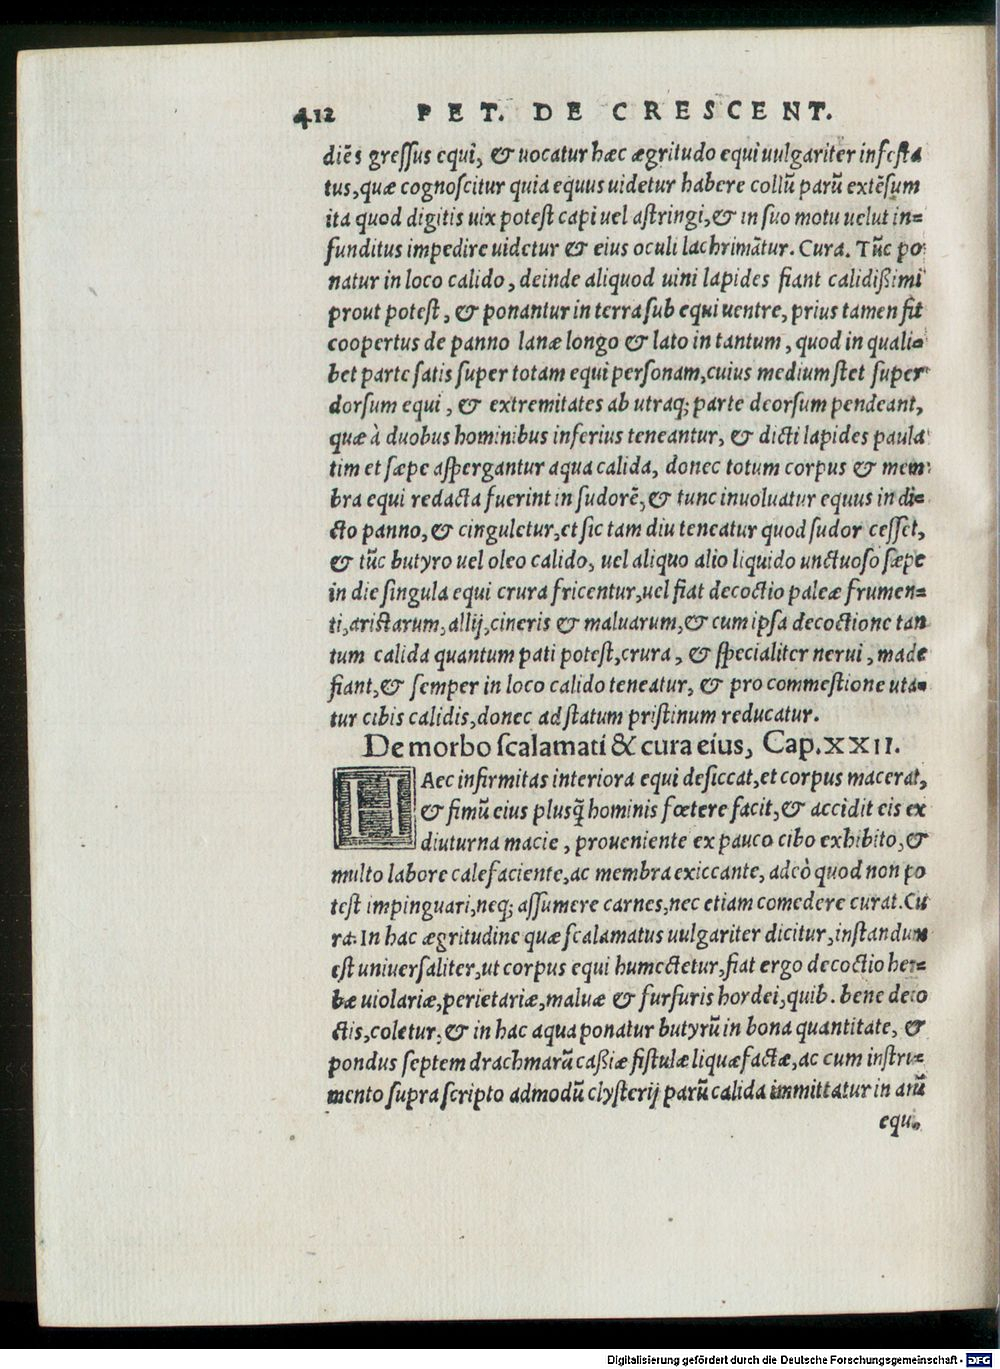 412 PET. DE CRESCENT.
diẽs gressus equi, & uocatur hæc ægritudo equi uulgariter infesta
tus, quæ cognoscitur quia equus uidetur habere collũ parũ extẽsum
ita quod digitis uix potest capi uel astringi, & in suo motu uelut in=
funditus impedire uidetur & eius oculi lachrimãtur. Cura. Tũc po
natur in loco calido, deinde aliquod uini lapides fiant calidißimi
prout potest, & ponantur in terra sub equi uentre, prius tamen fit
coopertus de panno lanæ longo & lato in tantum, quod in quali=
bet parte satis super totam equi personam, cuius medium stet super
dorsum equi, & extremitates ab utraq; parte deorsum pendeant,
quæ à duobus hominibus inferius teneantur, & dicti lapides paula
tim et sæpe aspergantur aqua calida, donec totum corpus & mem
bra equi redacta fuerint in sudorẽ, & tunc inuoluatur equus in di=
cto panno, & cinguletur, et sic tam diu teneatur quod sudor cesset,
& tũc butyro uel oleo calido, uel aliquo alio liquido unctuoso sæpe
in die singula equi crura fricentur, uel fiat decoctio paleæ frumen=
ti, aristarum, allij, cineris & maluarum, & cum ipsa decoctione tan
tum calida quantum pati potest, crura, & specialiter nerui, made
fiant, & semper in loco calido teneatur, & pro commestione uta=
tur cibis calidis, donec ad statum pristinum reducatur.
De morbo scalamati & cura eius, Cap. XXII.
HAec infirmitas interiora equi desiccat, et corpus macerat,
& fimũ eius plusq̃ hominis fœtere facit, & accidit eis ex
diuturna macie, proueniente ex pauco cibo exhibito, &
multo labore calefaciente, ac membra exiccante, adeò quod non po
test impinguari, neq; assumere carnes, nec etiam comedere curat. Cu
ra. In hac ægritudine quæ scalamatus uulgariter dicitur, instandum
est uniuersaliter, ut corpus equi humectetur, fiat ergo decoctio her=
bæ uiolariæ, perietariæ, maluæ & furfuris hordei, quib. bene deco
ctis, coletur, & in hac aqua ponatur butyrũ in bona quantitate, &
pondus septem drachmarũ caßiæ fistulæ liquæfactæ, ac cum instru=
mento supra scripto admodũ clysterij parũ calida immittatur in anũ
equi
Digitalisierung gefördert durch die Deutsche Forschungsgemeinschaft - DFG